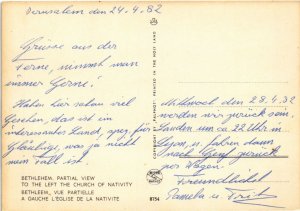 Jerusalem den 24.4.82
Grüsse aus der
Ferne, nimmt man
immer Gerne!
Haben hier schon viel
Gesehen, das ist ein
interessantes Land, nur für
Gläubige, was ja nicht
mein Fall ist.
BETHLEHEM. PARTIAL VIEW
TO THE LEFT THE CHURCH OF NATIVITY
BETHLEEM. VUE PARTIELLE
A GAUCHE L'EGLISE DE LA NATIVITE
8754
PRINTED IN THE HOLY LAND
Mittwoch den 28.4.82
werden wir zurück sein,
landen um 22 Uhr in
, u. fahren dann
nach Genf zurück
per Wagen.
Freundlichst
Pamela u. Fritz